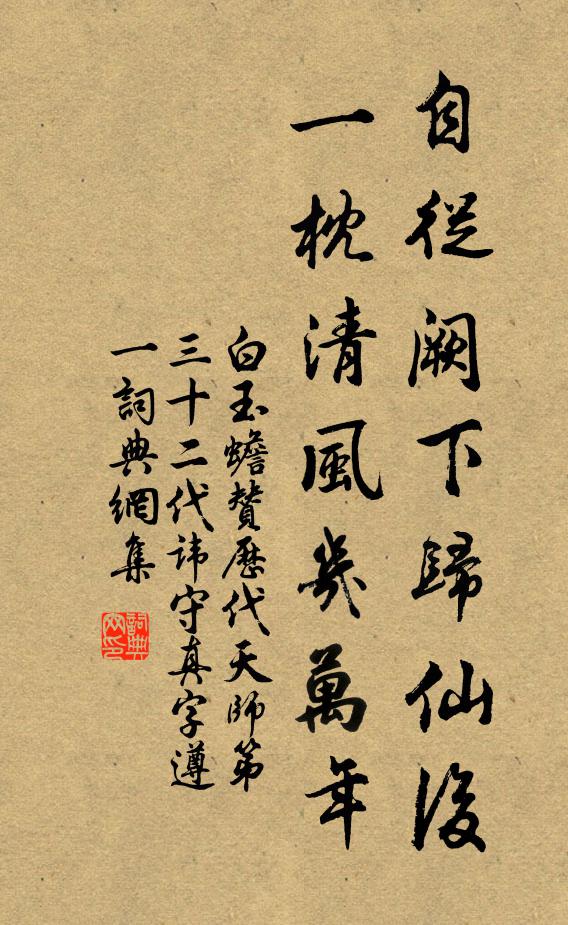 自從闕下歸仙後
一枕清風幾萬年
白玉蟾贊歷代天師第
三十二代諱守真字遵
一詞典網集
詞典網印